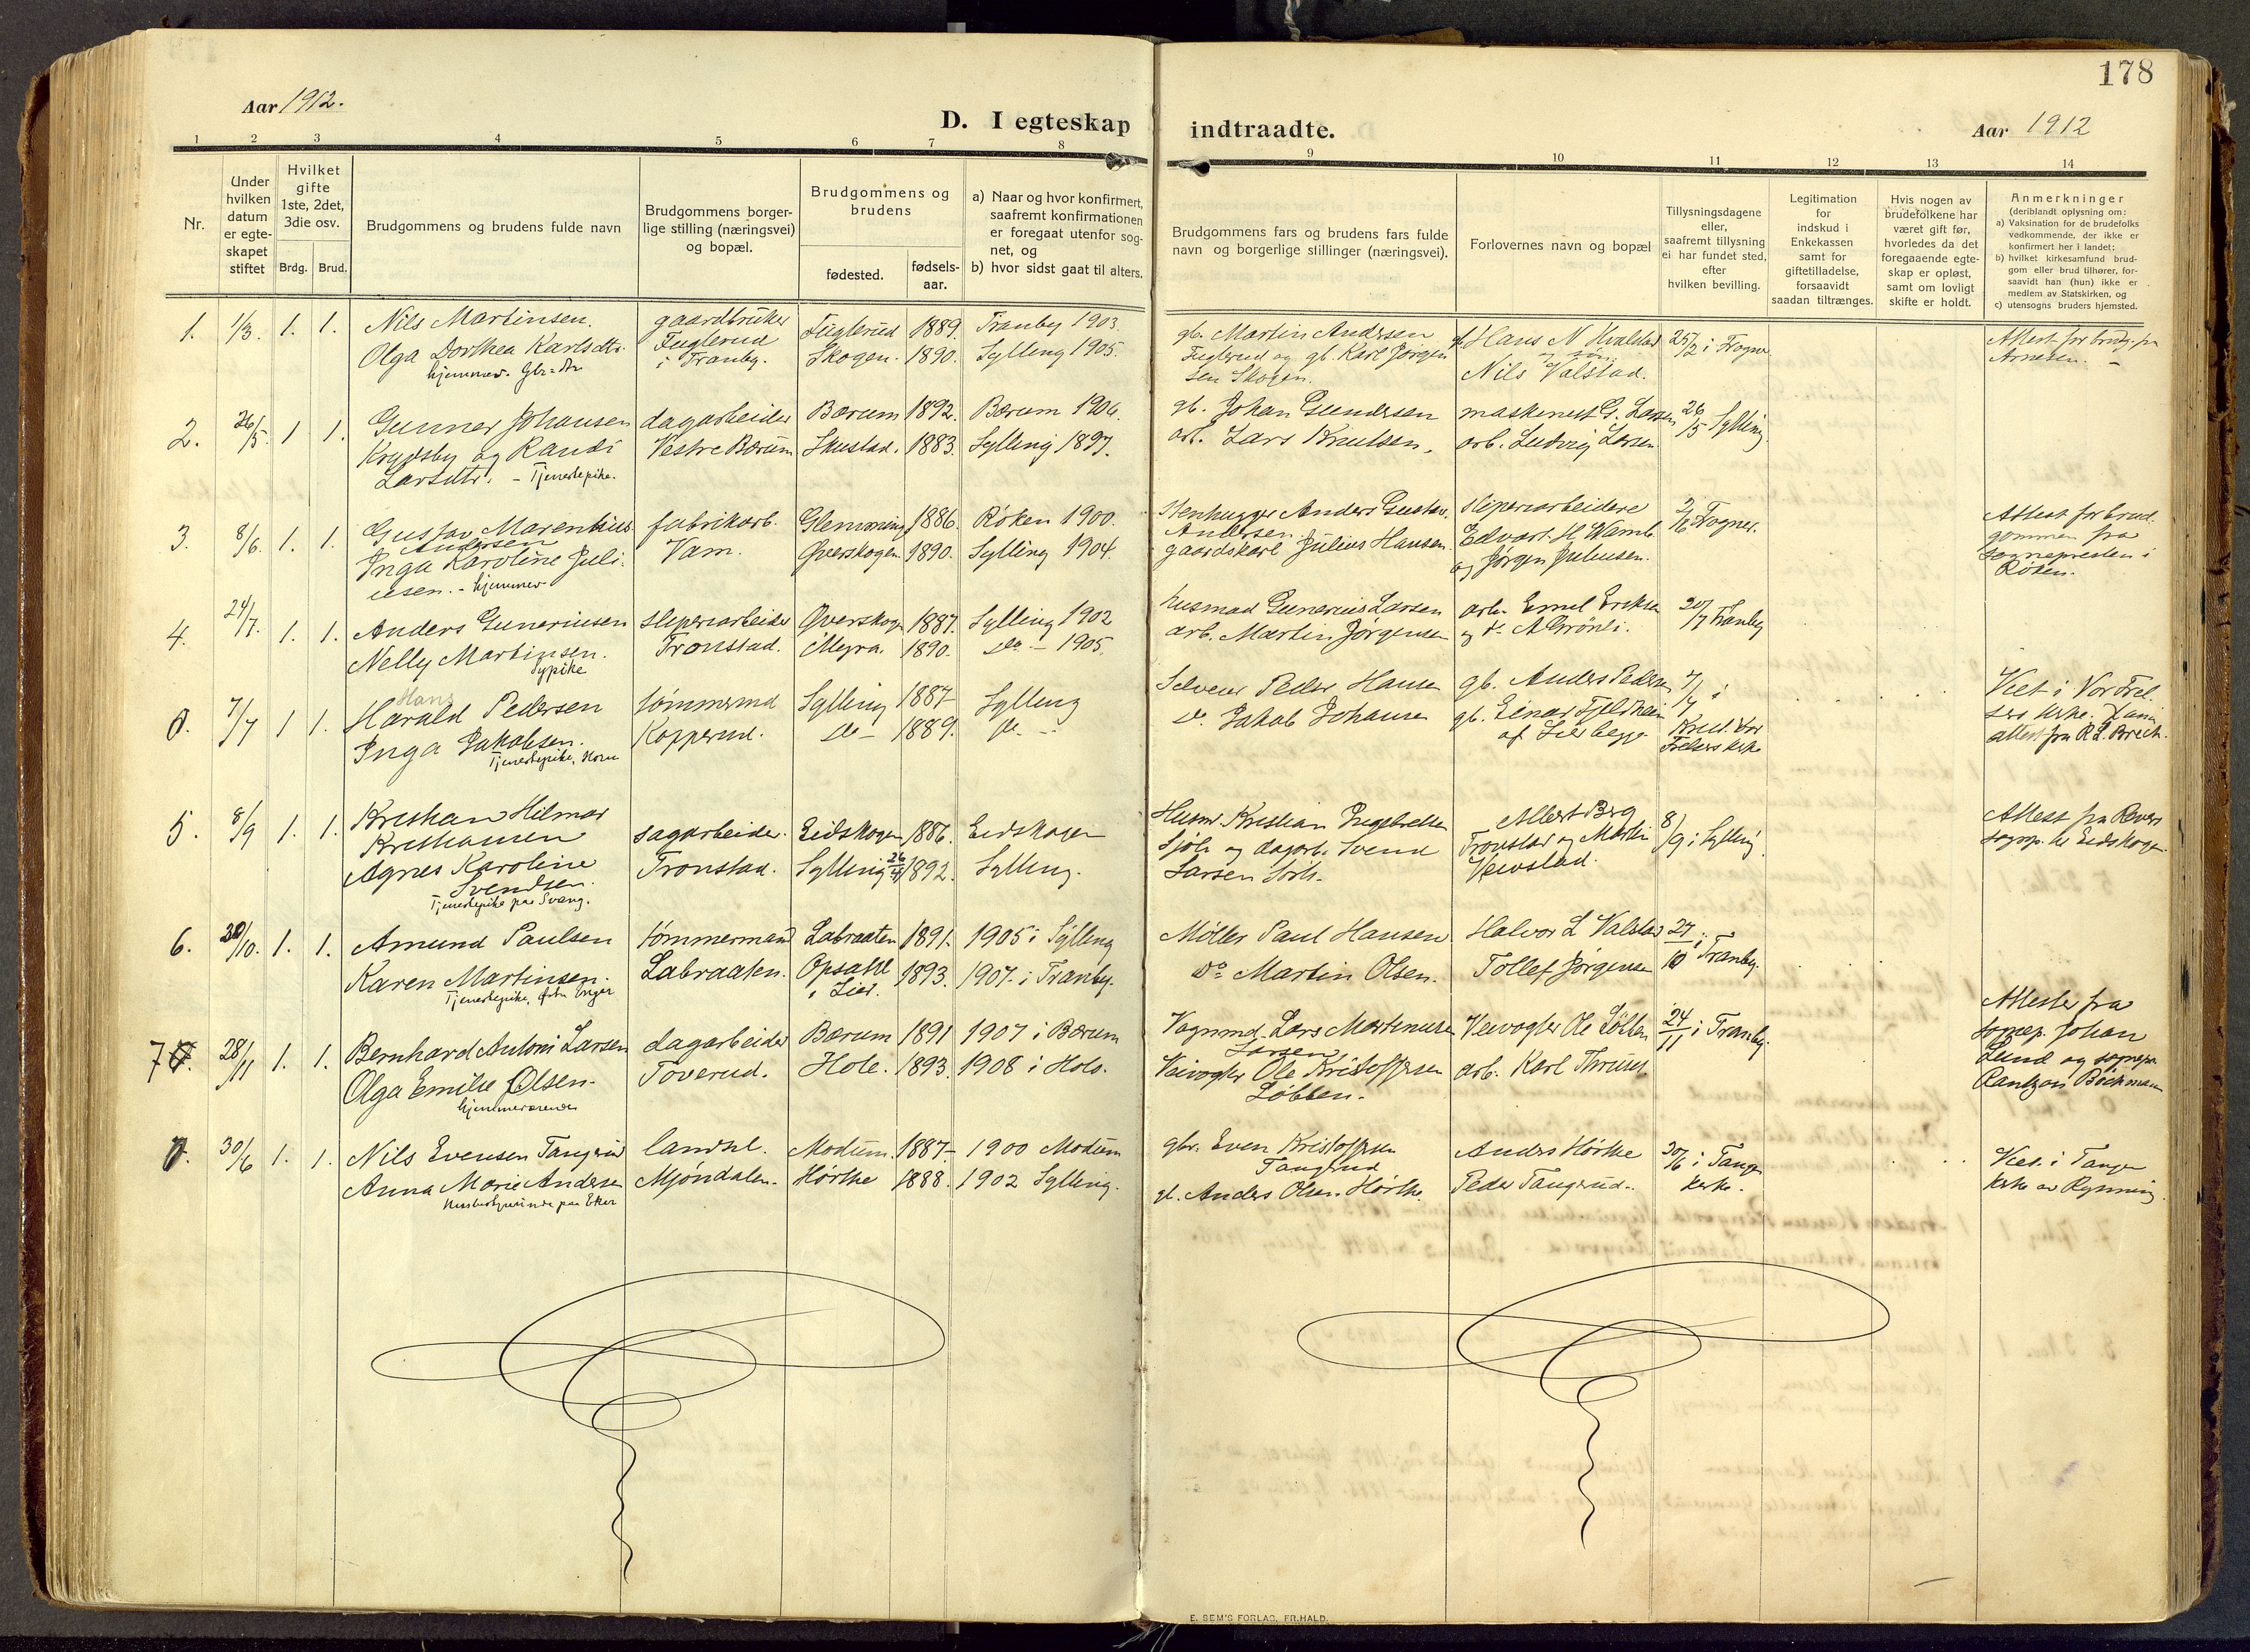 178
Aar 1912.
D. I egteskap indtraadte.
Aar 1912
1 2 3 4 5 6 7 8 9 10 11 12 13 14
Nr.
Under hvilken datum er egte-skapet stiftet
Hvilket gifte 1ste, 2det, 3die osv.
Brdg. Brud.
Brudgommens og brudens fulde navn
Brudgommens borger-
lige stilling (næringsvei)
og bopæl.
Brudgommens og
brudens
fødested.
fødsels-
aar.
a) Naar og hvor konfirmert,
saafremt konfirmationen
er foregaat utenfor sog-
net, og
b) hvor sidst gaat til alters.
Brudgommens fars og brudens fars fulde
navn og borgerlige stillinger (næringsvei).
Forlovernes navn og bopæl
Tillysningsdagene
eller,
saafremt tillysning
ei har fundet sted,
efter
hvilken bevilling.
Legitimation
for
indskud i
Enkekassen
samt for
giftetilladelse,
forsaavidt
saadan tiltrænges.
Hvis nogen av
brudefolkene har
været gift før,
hvorledes da det
foregaaende egte-
skap er opløst,
samt om lovligt
skifte er holdt.
Anmerkninger
(deriblandt oplysning om:
a) Vaksination for de brudefolks
vedkommende, der ikke er
konfirmert her i landet;
b) hvilket kirkesamfund brud-
gom eller brud tilhører, for-
saavidt han (hun) ikke er
medlem av Statskirken, og
c) utensogns bruders hjemsted.
1. 1/3. 1. 1. Nils Martinsen.
Olga Dorthea Karlsdtr.
hjemmev. Gbr=dtr
gaardbruker
Fuglerud
i Tranby.
Fuglerud 1889. Tranby 1903.
Skogen. 1890. Sylling 1905.
gb. Martin Andersen
Fuglerud og gb. Karl Jørgen
sen Skogen.
Hans N Hvalstad
Nils Valstad.
25/2 i Frogner
Attest for brudg. fra
Arnesen.
2. 26/5. 1 1. Gunner Johansen
Krydsby og Randi
Larsdtr. - Tjenestepike.
dagarbeider
Vestre Bærum
Bærum 1892. Bærum 1906.
Skustad. 1883. Sylling 1897.
gb. Johan Gundersen
arb. Lars Knutsen.
maskinist G. Larsen
arb. Ludvig Larsen
26/5 Sylling.
3. 8/6. 1. 1. Gustav Marenhius
Andersen
Inga Karoline Juli-
usen. - hjemmev
fabrikarb.
Vam.
Glemminge 1886. Røken 1900.
Øverskogen 1890. Sylling 1904.
Stenhugger Anders Gustav.
Andersen
gaardskarl Julius Hansen.
sliperiarbeidere
Edvart H. Wamb.
og Jørgen Juliussen.
2/6 Frogner.
Attest for brud-
gommen fra
sognepresten i
Røken.
4. 24/7. 1. 1. Anders Guneriusen
Nelly Martinsen.
Sypike
sliperiarbeider
Tronstad.
Øverskogen 1887. Sylling 1902
Myra. 1890. do - 1905.
husmand Gunerius Larsen
arb. Martin Jørgensen
arb. Emil Eriksen
og do A Grönli.
20/7 Tranby
0. 7/7 1 1. Hans
Harald Pedersen
Inga Jakobsen.
Tjenestepike, Horn
tømmermd
Kopperud.
Sylling 1887 Sylling
do - 1889. do -
Selveier Peder Hansen
do. Jakob Johansen
gb. Anders Pedersen
gb. Einar Fjeldheim
af Lierbyge
7/7 i
Krist. Vor
Frelsers kirke
Viet i Vor Frel
sers kirke.
attest fra R. L. Brech.
5. 8/9 1. 1. Kristian Hilmar
Kristiansen
Agnes Karoline
Svendsen.
Tjenestepike paa Svang.
sagarbeider.
Tronstad.
Eidskogen 1886. Eidskogen
Sylling 26/4 1892. Sylling.
Husm. Kristian Engebretsen
Sjøli og dagarb. Svend
Larsen Sørli.
Albert Berg
Tronstad og Martin
Veivstad.
8/9 i Sylling.
Attest fra
sognep. til Eidskogen
6. 30/10. 1. 1. Amund Paulsen
Karen Martinsen.
Tjenestepike, østre Enger
tømmermand
Labraaten.
Labraaten 1891. 1905 i Sylling
Opsahl
i Lier. 1893. 1907. i Tranby.
Møller Paul Hansen
do Martin Olsen.
Halvor L Valstad
Tollef Jørgensen
27/10 i Tranby.
7 0. 28/11 1. 1. Bernhard Antoni Larsen
Olga Emilie Olsen.
hjemmeværende
dagarbeider
Toverud.
Bærum 1891 1907 i Bærum
Hole. 1893. 1908 i Hole.
Vognmd. Lars Martinusen
Larsen
Veivogter Ole Kristoffersen
Løbben.
Veivogter Ole Løbben
arb. Karl Thrulsen
24/11 i Tranby.
Attester fra
sognep. Johan
Lund og sognepr
Rantzau Böckman
0. 30/6 1. 1. Nils Evensen Tangerud
Anna Marie Andersen
Husbestyrerinde paa Eker
landhl.
Mjøndalen.
Modum. 1887 1900 Modum
Hørthe 1888. 1902 Sylling.
gbr. Even Kristoffersen
Tangerud
gb. Anders Olsen Hørthe.
Anders Hørthe
Peder Tangerud.
30/6 i Tangen
kirke.
Viet. i Tangen
kirke av Rynning.
E. SEM'S FORLAG, FR.HALD.